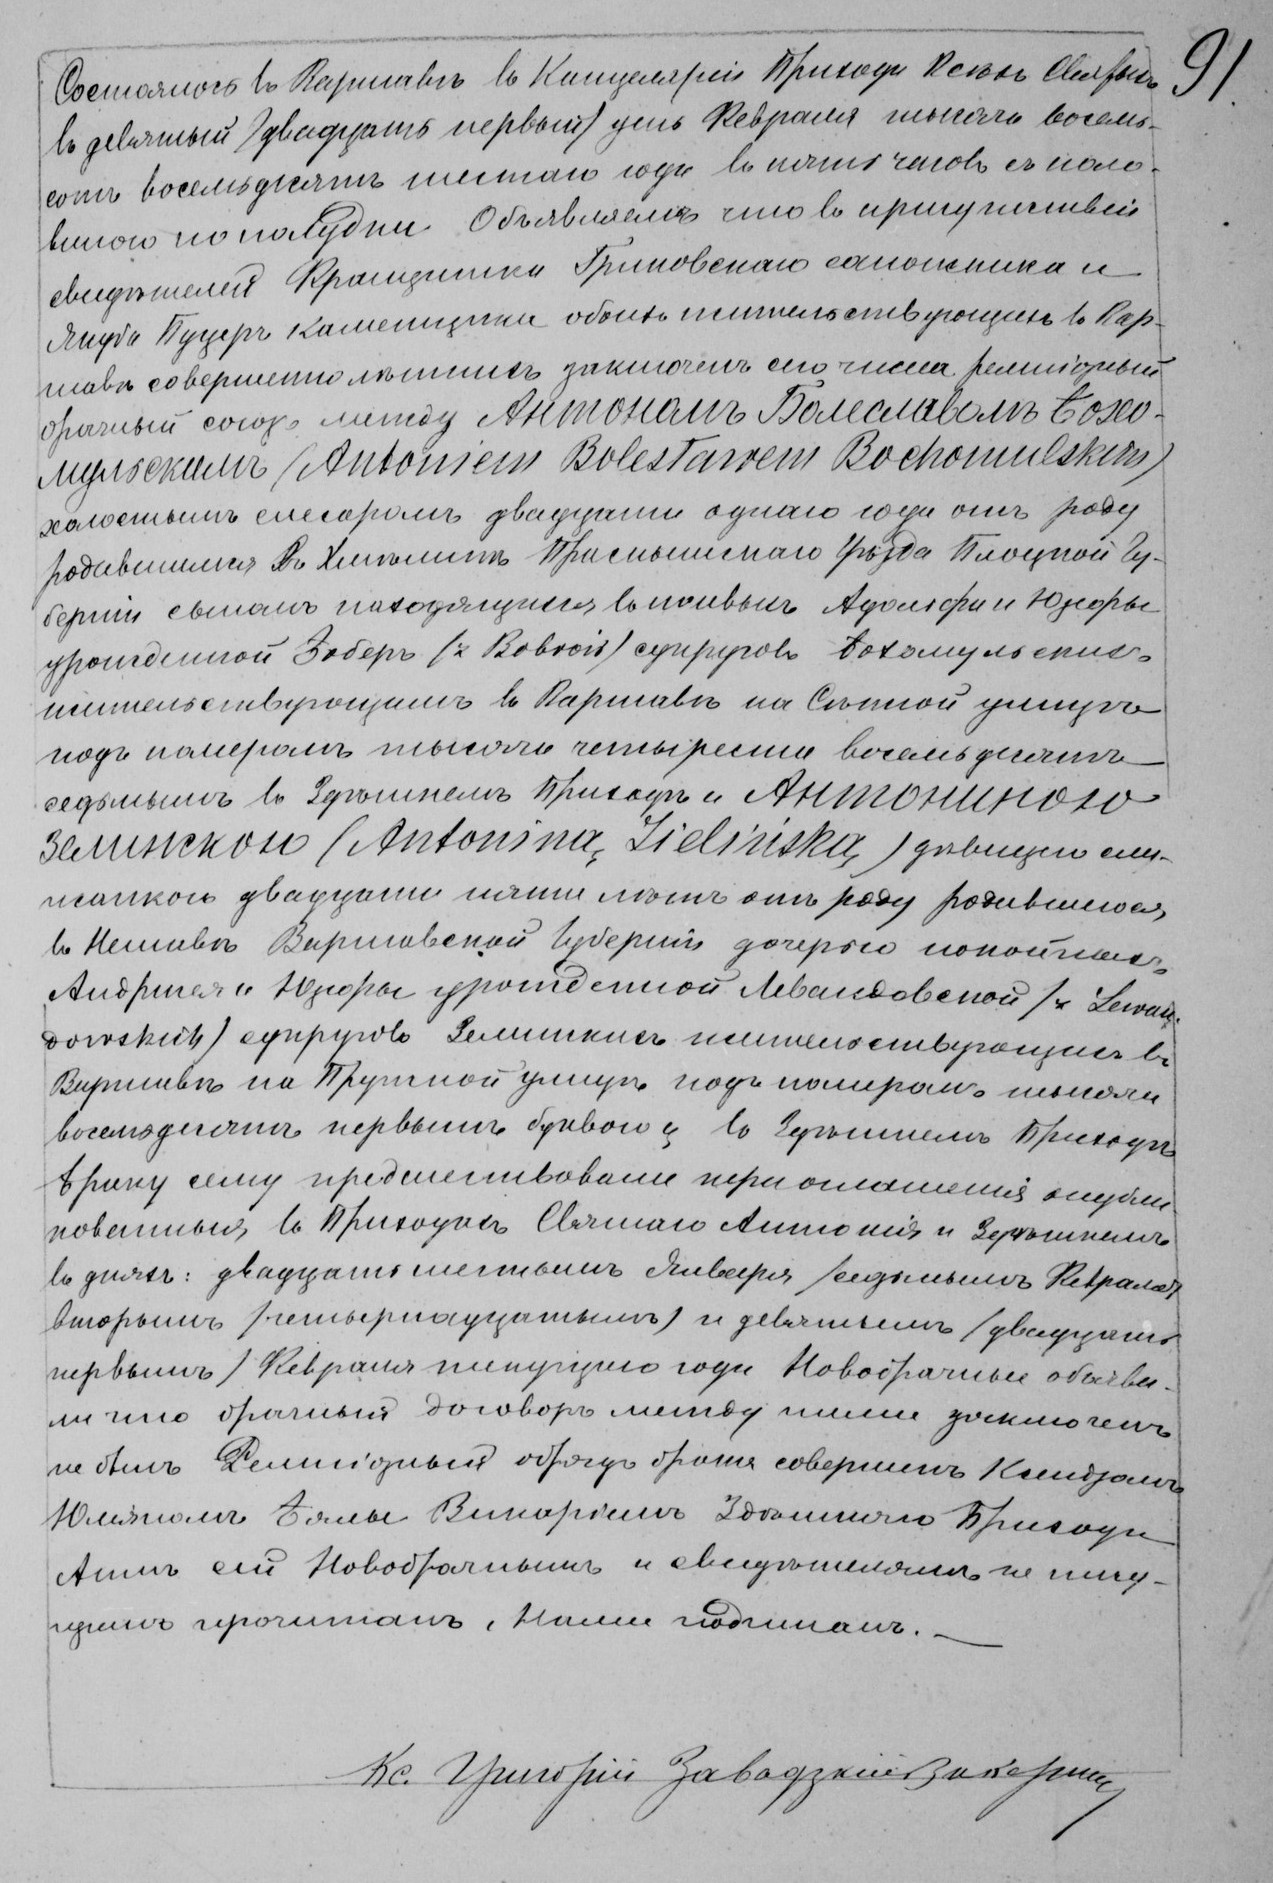 91
Состоялось въ Варшавѣ въ Канцеляріи Прихода Всѣхъ Святыхъ
въ девятый /двадцать первый/ день Февраля тысяча восемь-
сотъ восемьдесятъ шестаго года въ пять часовъ съ поло-
виною по полудни. Объявляемъ что въ присутствіи
свидѣтелей Францишка Гриновскаго сапожника и
Якуба Пуцеръ каменщика обоихъ жительствующихъ въ Вар-
шавѣ совершеннолѣтнихъ заключенъ сего числа религіозный
брачный союзъ между Антономъ Болеславомъ Бохо-
мульскимъ (Antoniem Bolesławem Bochomulskim)
холостымъ слесаромъ двадцати одного года отъ роду
родившимся въ Прасnышскаго Уѣзда Плоцкой Гу-
берніи сыномъ находящихся въ живыхъ Адольфа и Юзефы
урожденной Боберъ (z Bobrów) супруговъ Бохомульскихъ
жительствующимъ въ Варшавѣ на Сѣнной улицѣ
подъ номеромъ тысяча четыреста восемьдесятъ
седьмымъ въ Здѣшнемъ Приходѣ и Антониною
Зелинскою (Antoniną Zielińską) дѣвицею слу-
жанкою двадцати пяти лѣтъ отъ роду родившеюся
въ Нешавѣ Варшавской Губерніи дочерью покойныхъ
Андржея и Юзефы урожденной Левандовской (z Lewan-
dowskich) супруговъ Зелинскихъ жительствующею въ
Варшавѣ на Пружной улицѣ подъ номеромъ тысяча
восемьдесятъ первымъ буквою ц въ Здѣшнемъ Приходѣ
Браку сему предшествовали три оглашенія опубли
кованныя въ Приходахъ Святаго Антонія и Здѣшнемъ
въ дняхъ: двадцать шестымъ Января /седьмымъ Февраля/
вторымъ /четырнадцатымъ/ и девятымъ /двадцать
первымъ/ Февраля текущаго года Новобрачные объяви-
ли что брачный договоръ между ними заключенъ
не былъ Религіозный обрядъ брака совершенъ Ксендзомъ
Юліяномъ Бялы Викаріемъ Здѣшняго Прихода
Актъ сей Новобрачнымъ и свидѣтелямъ не пишу-
щимъ прочитанъ, Нами подписанъ. —
Кс. Григорій Завадзкій